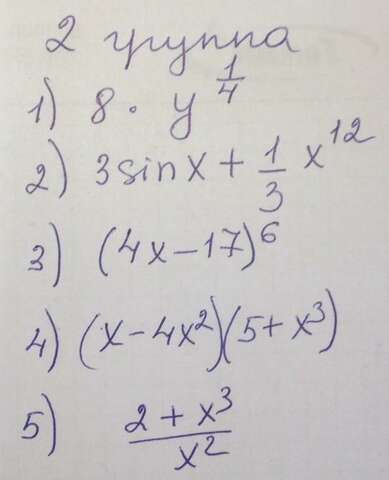 2 группа
1) 8 · y^{1/4}
2) 3sinx + \frac{1}{3} x^{12}
3) (4x-17)^6
4) (x-4x^2)(5+x^3)
5) \frac{2+x^3}{x^2}